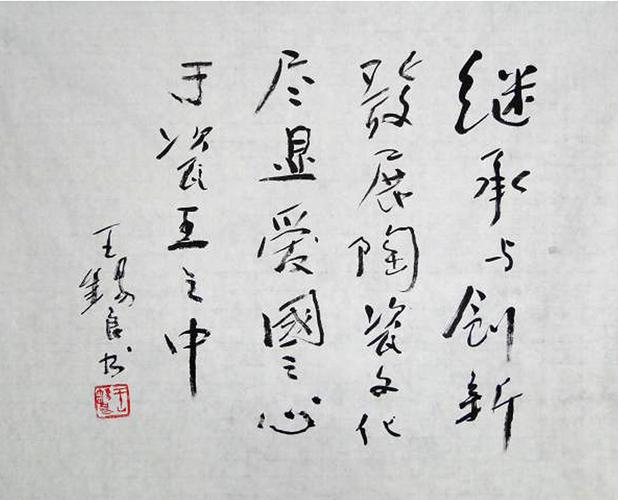 继承与创新
發展陶瓷文化
尽显爱國之心
于瓷王之中
王锡良书